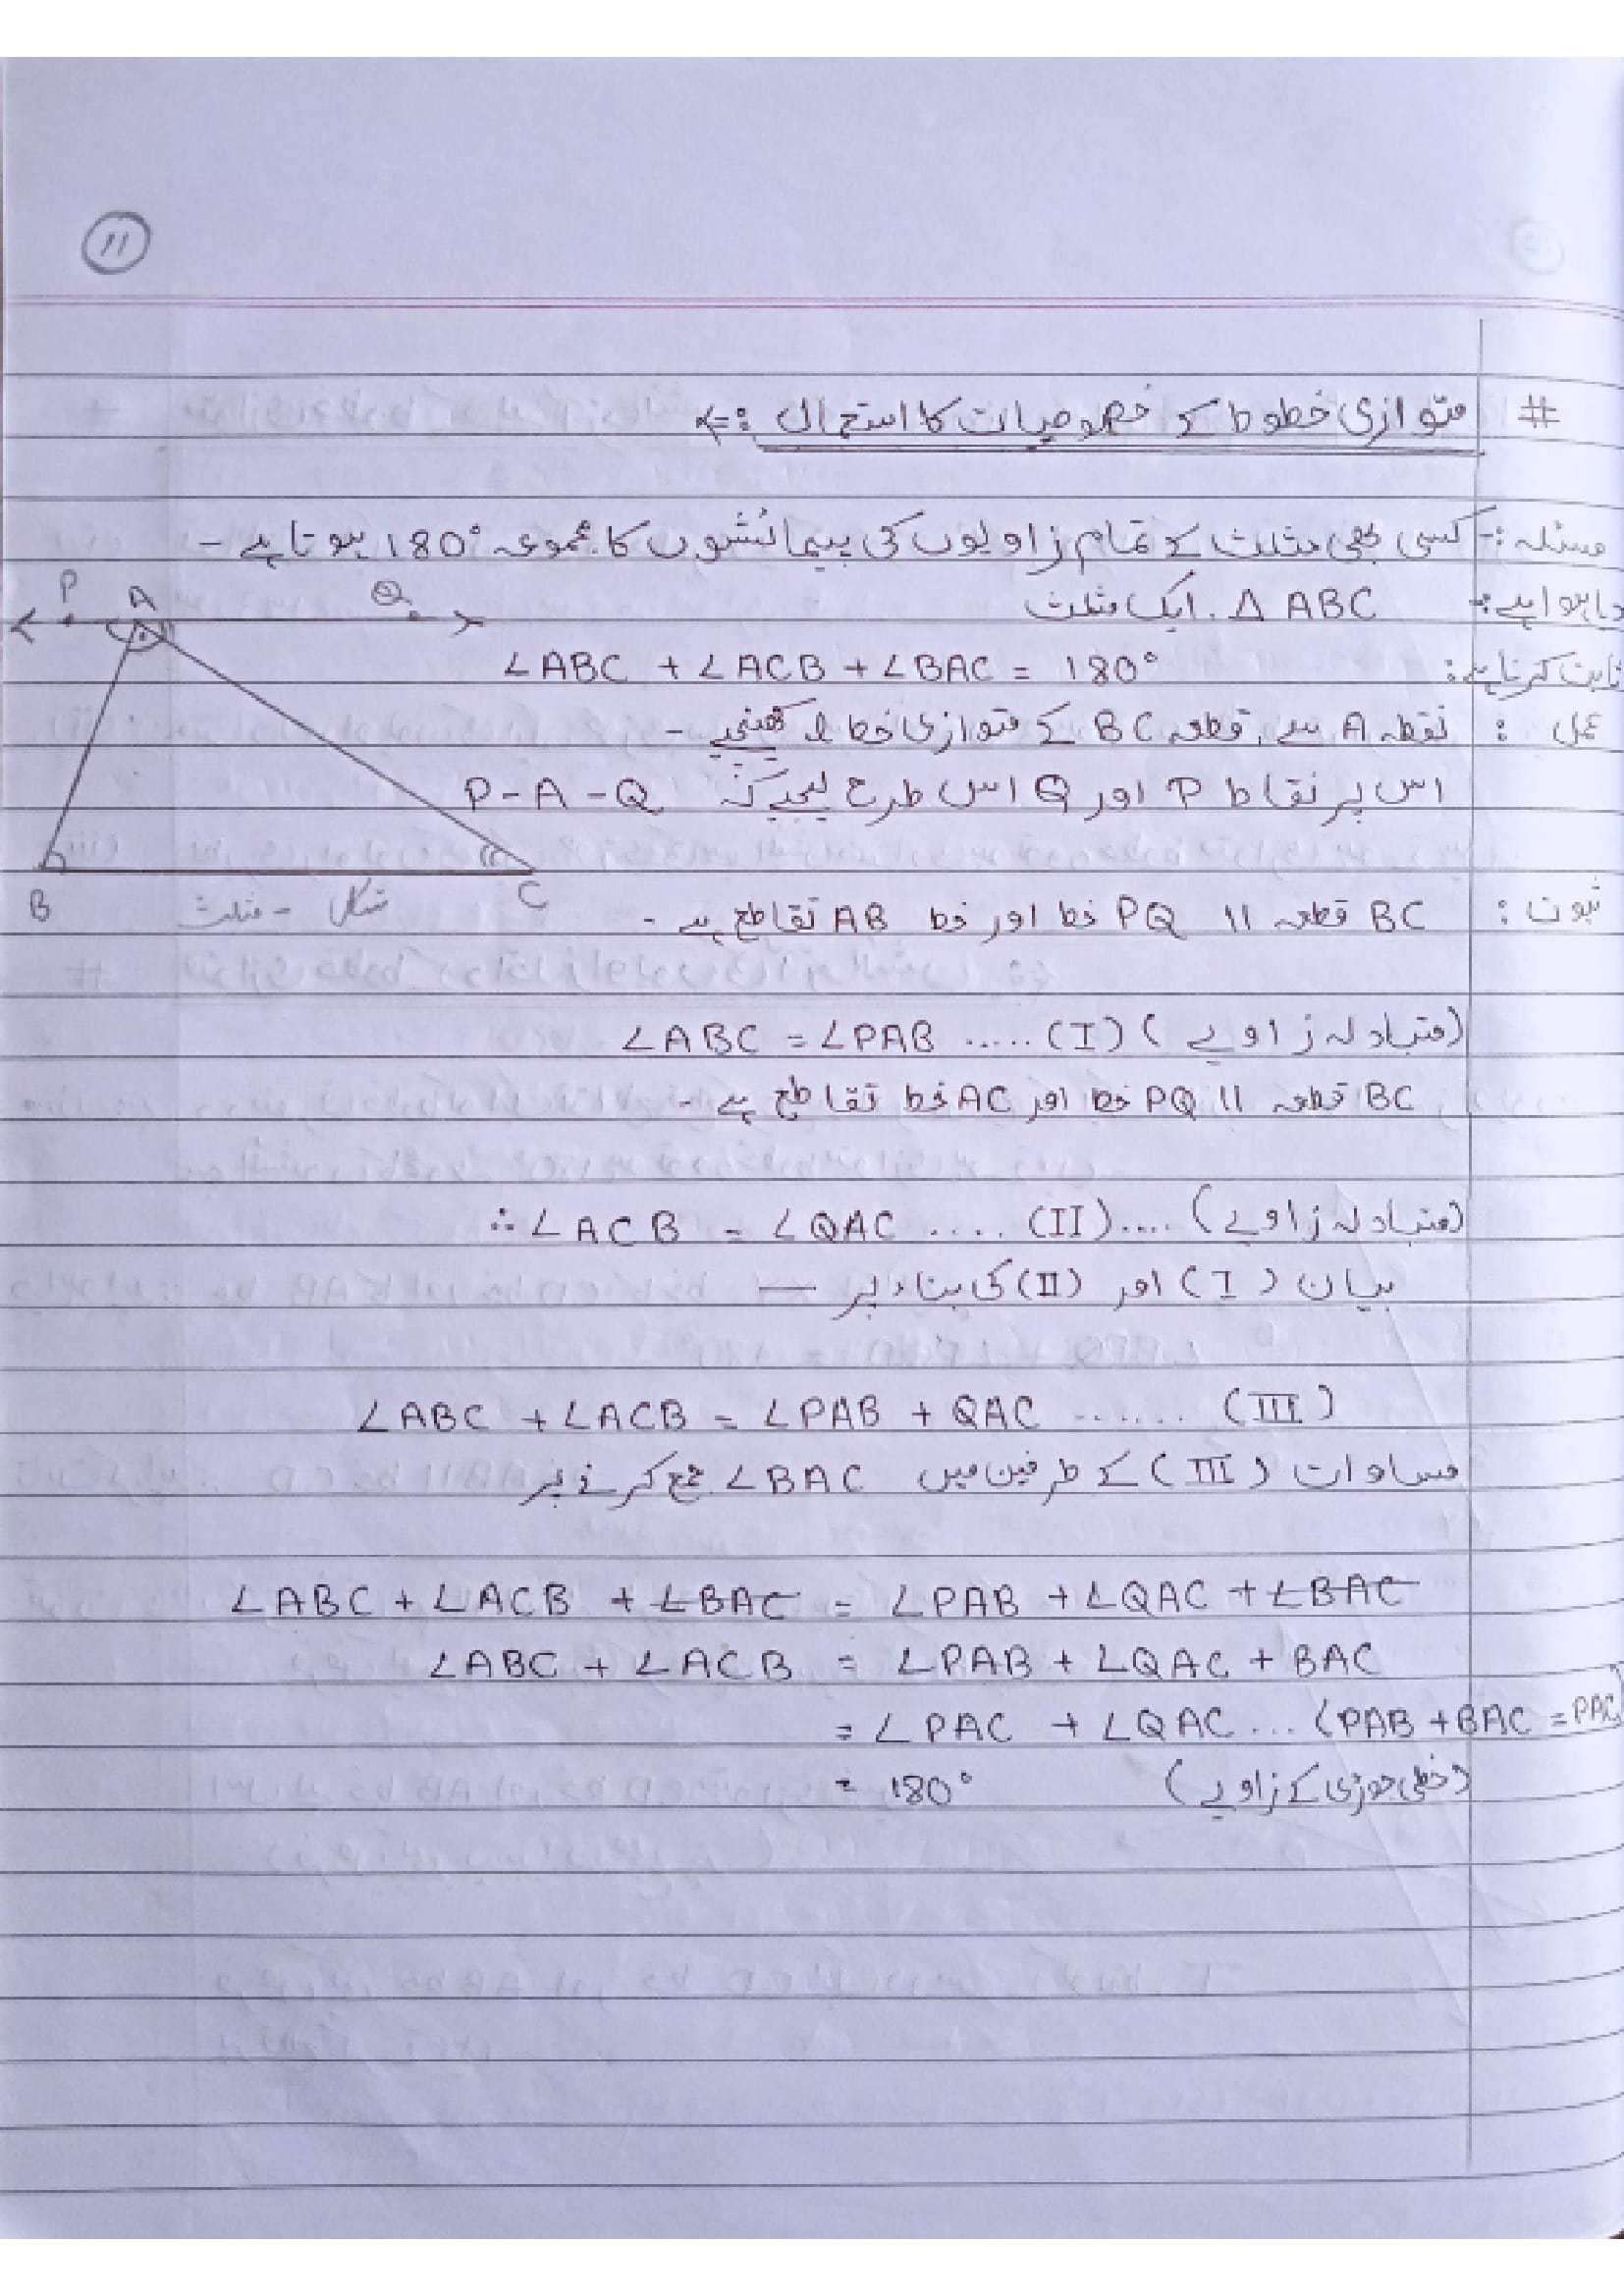 11
# متوازی خطوط کے خصوصیات کا استعمال :⇐
مسئلہ :- کسی بھی مثلث کے تمام زاویوں کی پیمائشوں کا مجموعہ 180° ہوتا ہے -
دیا ہوا ہے :- Δ ABC ایک مثلث
ثابت کرنا ہے : ∠ABC + ∠ACB + ∠BAC = 180°
عمل : نقطہ A سے قطعہ BC کے متوازی خط l کھینچیے -
اس پر نقاط P اور Q اس طرح لیجیے کہ P-A-Q
P A Q
B C
شکل - مثلث
ثبوت : BC قطعہ || PQ خط اور خط AB تقاطع ہے -
∠ABC = ∠PAB ..... (I) (متبادلہ زاویے)
BC قطعہ || PQ خط اور AC خط تقاطع ہے -
∴ ∠ACB = ∠QAC .... (II) .... (متبادلہ زاویے)
بیان (I) اور (II) کی بناء پر —
∠ABC + ∠ACB = ∠PAB + QAC ...... (III)
مساوات (III) کے طرفین میں ∠BAC جمع کرنے پر
∠ABC + ∠ACB + ∠BAC = ∠PAB + ∠QAC + ∠BAC
∠ABC + ∠ACB = ∠PAB + ∠QAC + BAC
= ∠PAC + ∠QAC ... (PAB + BAC = PAC)
= 180° (خطی جوڑی کے زاویے)